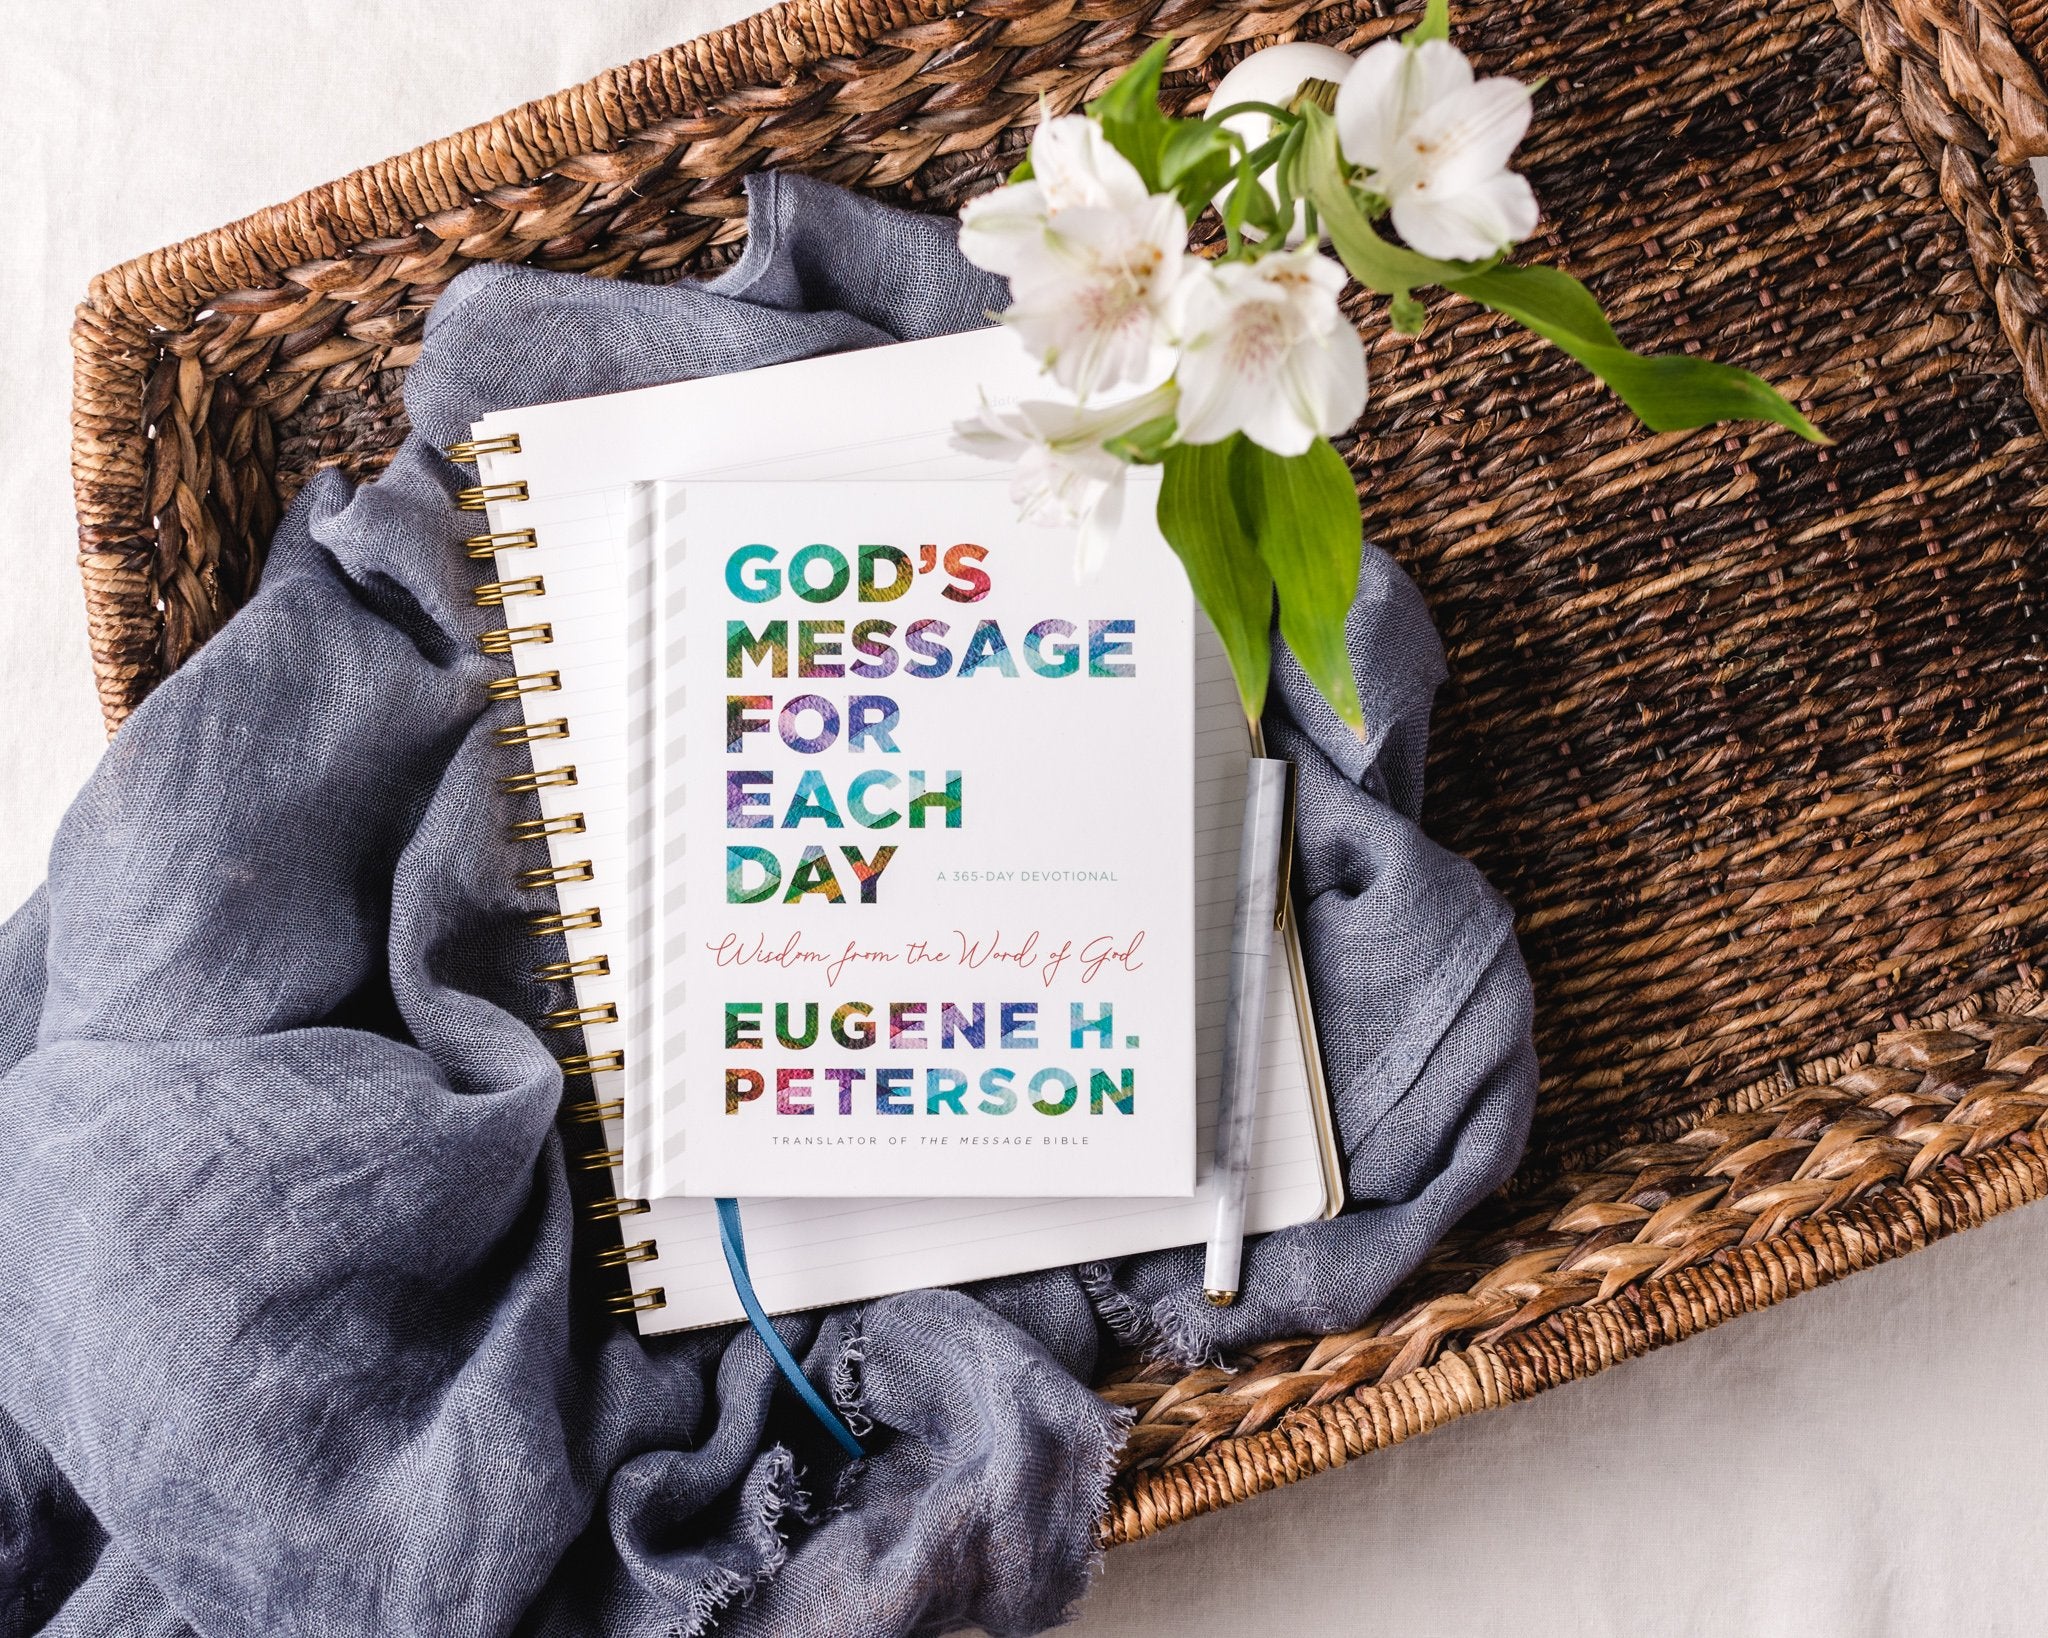 date
GOD'S
MESSAGE
FOR
EACH
DAY
A 365-DAY DEVOTIONAL
Wisdom from the Word of God
EUGENE H.
PETERSON
TRANSLATOR OF THE MESSAGE BIBLE